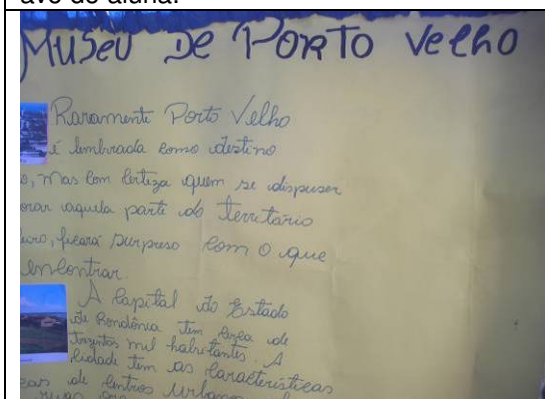 avó do aluna.
MUSEU DE PORTO VELHO
Raramente Porto Velho
é lembrada como destino
o, mas com certeza quem se dispuser
orar aquela parte do território
leiro, ficará surpreso com o que
encontrar.
A Capital do Estado
de Rondônia tem cerca de
trezentos mil habitantes. A
cidade tem as características
cas de centros urbanos